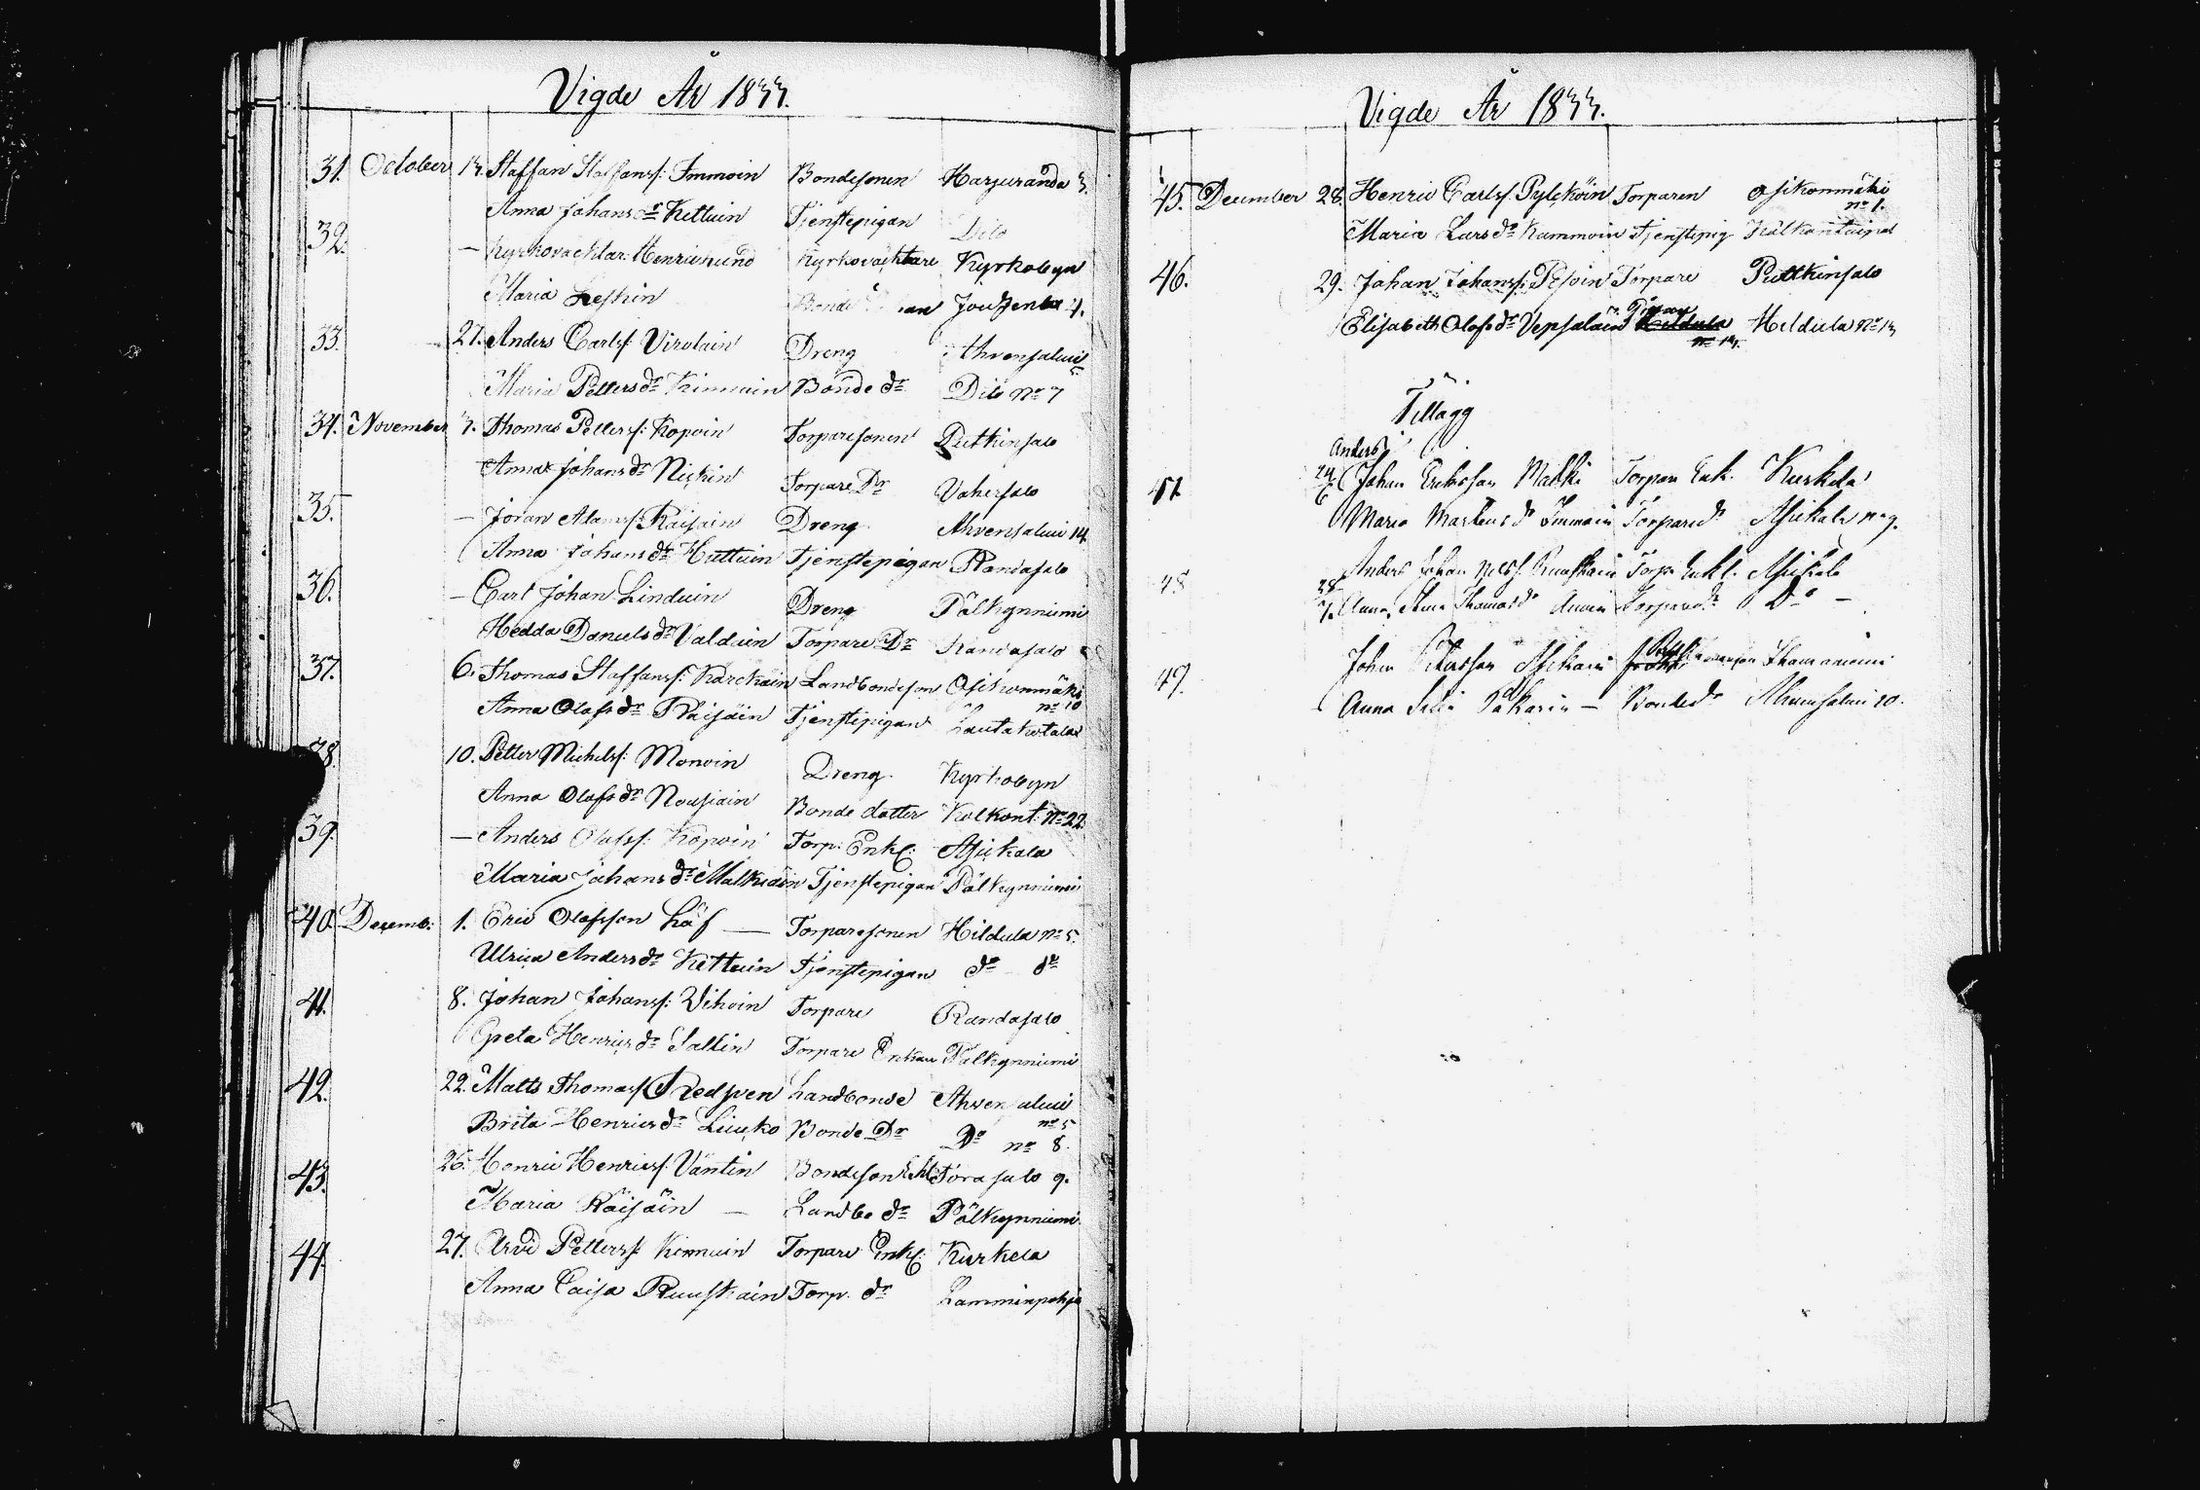 Vigde År 1833.
31. October 13. Staffan Staffanss: Immoin Bondesonen Harjuranda 3.
Anna Johans dr Kettuin Tjenstepigan Dito
32. — Kyrkovacktar. Henric Kyrkovacktare Kyrkobyn
Maria Leskin Bonde Jouhenla 4.
33. 27. Anders Carlss: Virolain Dreng Ahvensalmi 5
Maria Petters dr Kinnuin Bonde dr Dito No 7
34. November 3. Thomas Petterss: Kopoin Torparesonen Putkinsalo
Anna Johans dr Nickin Torpare Dr Vahersalo
35. — Jöran Adamss: Räisäin Dreng Ahvensalmi 14
Anna Johans dr Huttuin Tjenstepigan Randasalo
36. — Carl Johan Linduin Dreng Pälkynniemi
Hedda Daniels dr Valduin Torpare Dr Randasalo
37. 6. Thomas Staffanss: Karckäin Landbondeson Osikonmäki No 10
Anna Olofs dr Räisäin Tjenstepigan Lautakotala
38. 10. Petter Michelss: Monoin Dreng Kyrkobyn
Anna Olofs dr Nousiain Bonde dotter Kolkont. No 22
39. — Anders Olofss: Kopoin Torp: Enkl: Asickala
Maria Johans dr Malkiain Tjenstepigan Pälkynniemi
40. Decemb: 1. Eric Olofsson Löf — Torparesonen Hildula No 5.
Ulrica Anders dr Kettuin Tjenstepigan do do
41. 8. Johan Johanss: Vihoin Torpare Randasalo
Greta Henrics dr Sallin Torpare Enkan Pälkynniemi
42. 22. Matts Thomass Redsven Landbonde Ahvensalmi No 5
Brita Henrics dr Liucko Bonde Dr Do No 8.
43. 26. Henric Henricss: Väntin Bondeson Enkl Torasalo 9.
Maria Räisäin — Landbo dr Pälkynniemi
44. 27. Arvid Petterss: Kinnuin Torpare Enkl: Kurkela
Anna Caisa Ruuskain Torp. dr Lamminpohja
Vigde År 1833.
45. December 28. Henric Carlss. Pylcköin Torparen Osikonmäki No 1.
Maria Lars dr Kammoin Tjenstepig Kålkontaipal
46. 29. Johan Johanss: Pesoin Torpare Putkinsalo
Elisabeth Olofs dr Vepsalain Pigan Hildula No 13
Tillägg
Anders
47. 24/6 Johan Ericksson Malki Torpare Enk. Kurkela
Maria Martens dr Immoin Torpare dr Asickala No 9.
48 28/7. Anders Johan Nilss. Ruuskain Torp. Enkl. Asickala
Anna Stina Thomas dr Auvin Torpare dr Do —
49. Johan Petersson Asikain
Anna Pakarin — Bonde dr Ahvensalmi 10.